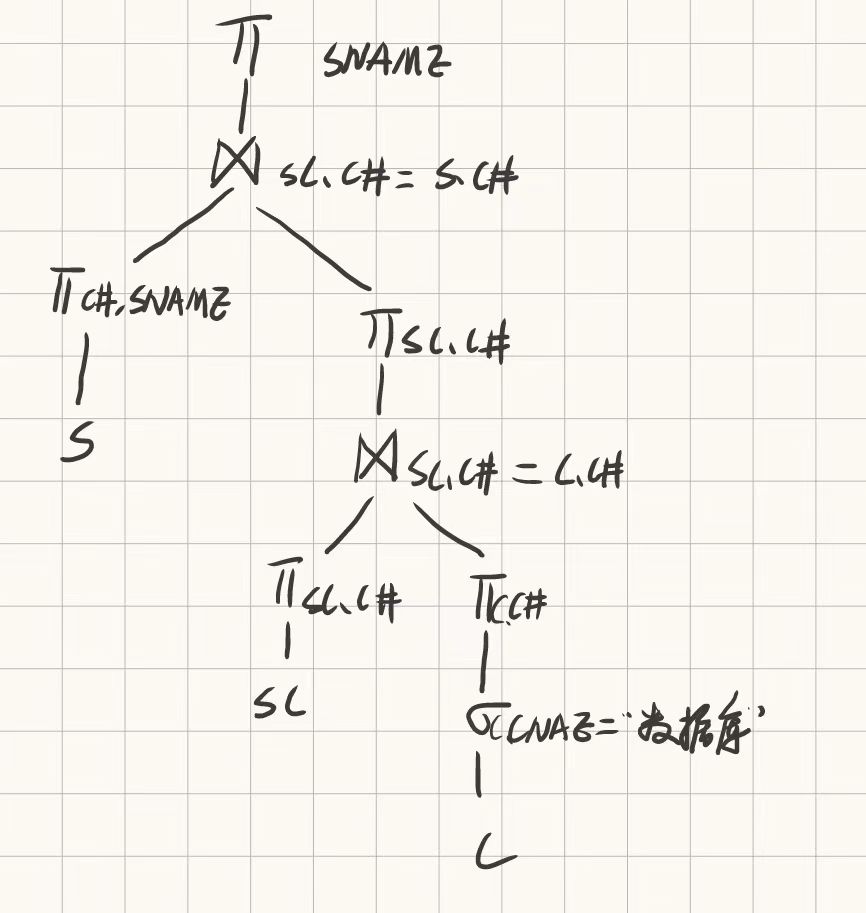 Π SNAME
⋈ SC.C# = S.C#
Π C#,SNAME
Π SC.C#
S
⋈ SC.C# = C.C#
Π SC.C#
Π C.C#
SC
σ C.CNAE = "数据库"
C